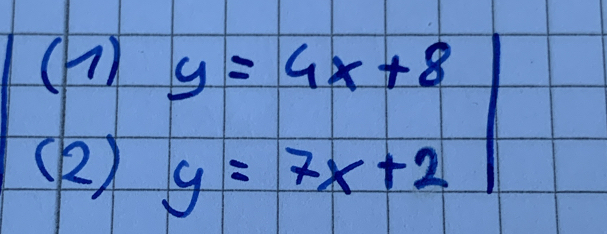 (1) y = 4x + 8
(2) y = 7x + 2